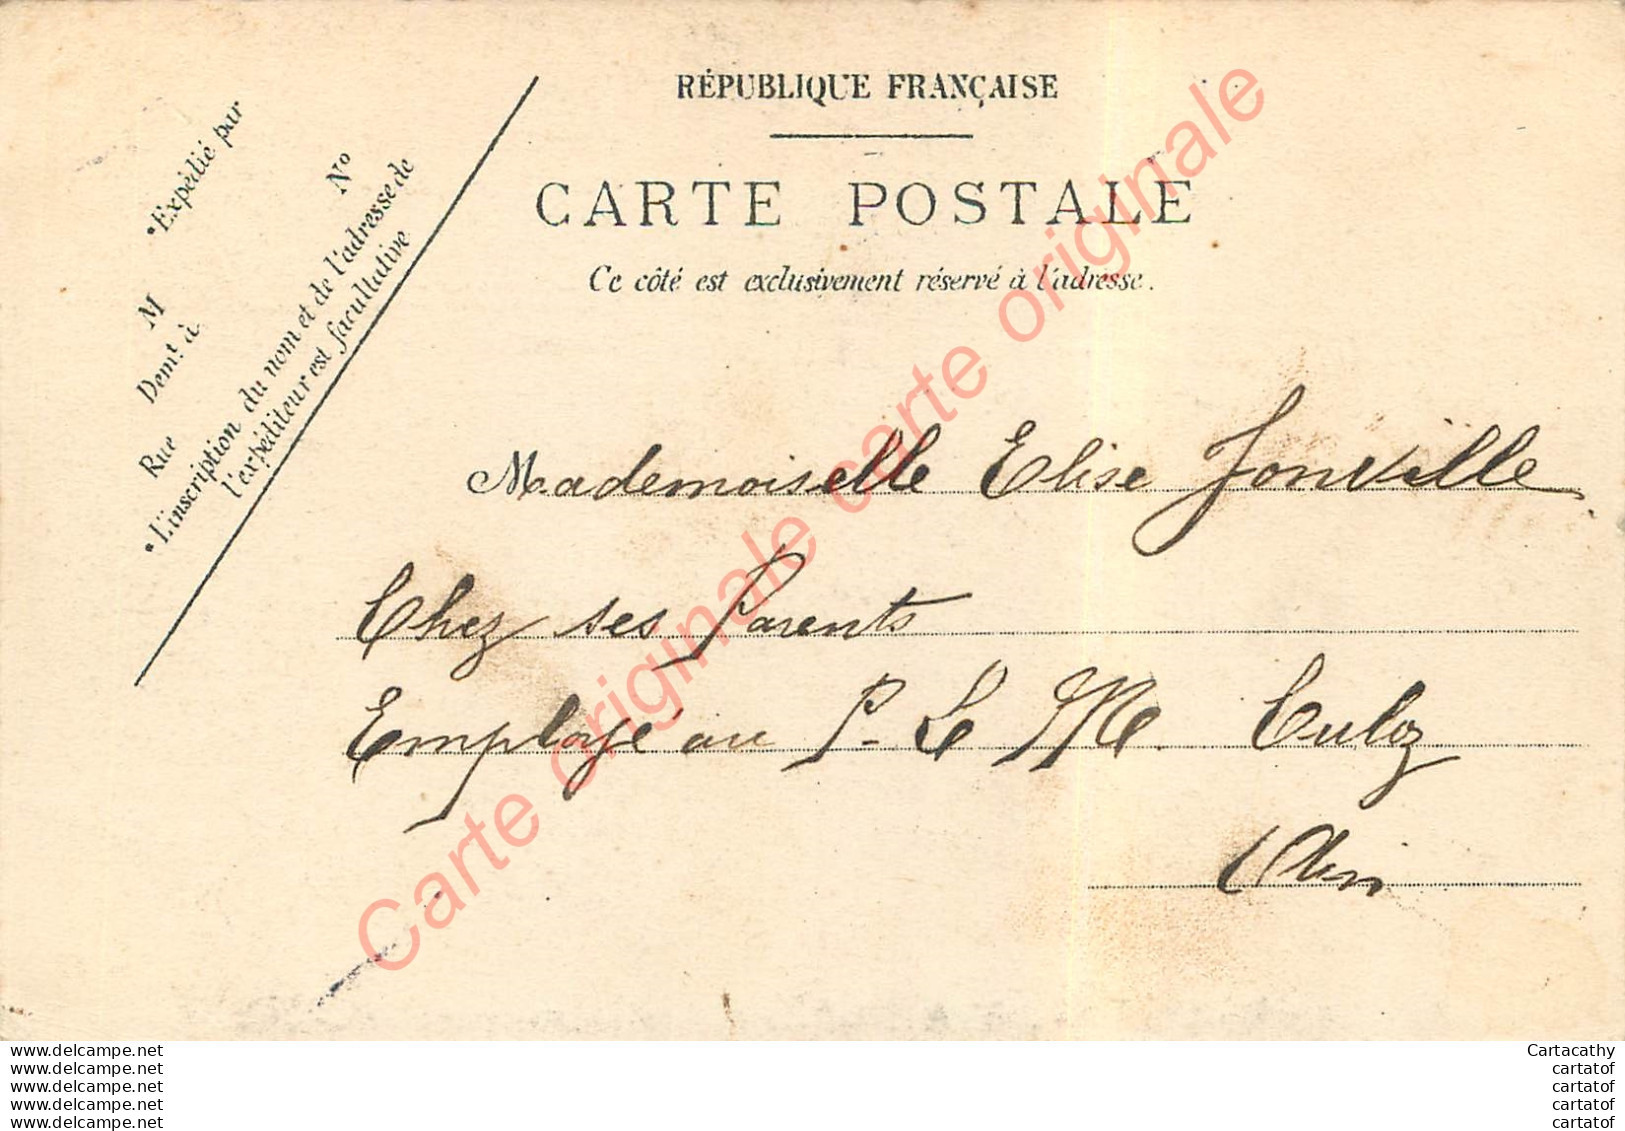 RÉPUBLIQUE FRANÇAISE
CARTE POSTALE
Ce côté est exclusivement réservé à l'adresse.
•Expédié par
M
Demt. à
Rue
No
•L'inscription du nom et de l'adresse de
l'expéditeur est facultative
Mademoiselle Elise Jonville
Chez ses Parents
Employé au P. L. M. Culoz
Ain
Carte originale carte originale
Carte originale carte originale
www.delcampe.net
www.delcampe.net
www.delcampe.net
www.delcampe.net
www.delcampe.net
Cartacathy
cartatof
cartatof
cartatof
cartatof